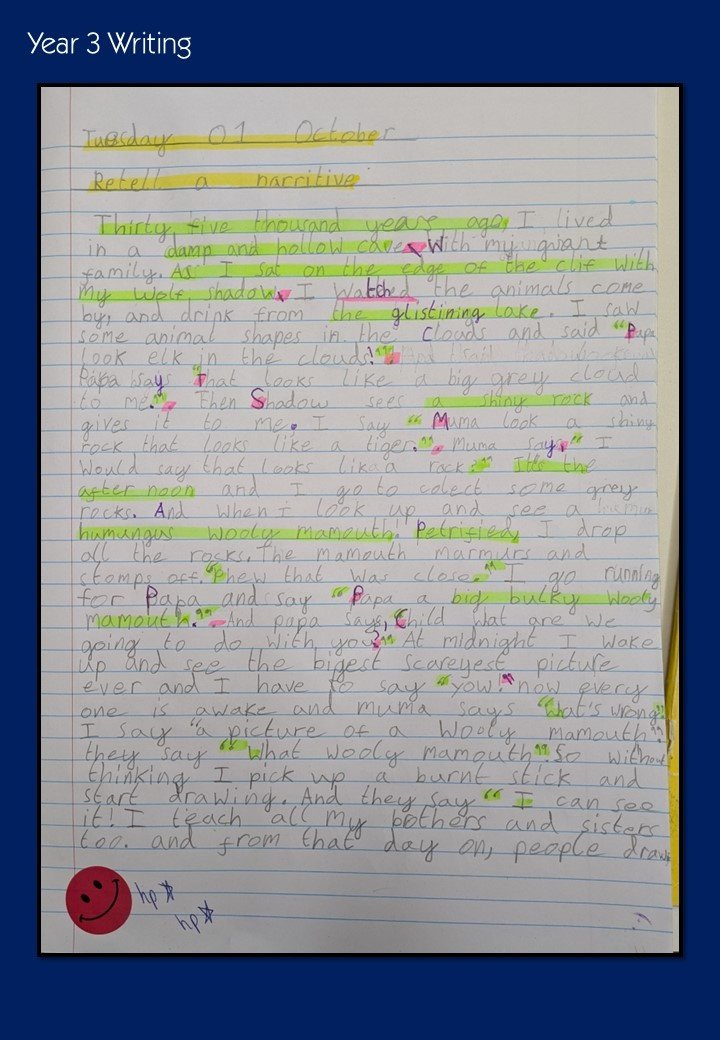 Year 3 Writing
Tuesday 01 October
Retell a narritive
Thirty five thousand years ago, I lived
in a damp and hollow cave, With my giant
family. As I sat on the edge of the clif With
My Wolf, shadow, I Watched the animals come
by, and drink from the glistining lake. I saw
some animal shapes in the Clouds and said "Papa
look elk in the clouds!"
Papa says That looks like a big grey cloud
to me.", Then Shadow sees a shiny rock and
gives it to me. I say "Muma look a shiny
rock that looks like a tiger.", Muma says, "I
Would say that looks lika a rock." It's the
after noon and I go to colect some grey
rocks. And when i look up and see a
humungus Wooly mamouth! Petrified, I drop
all the rocks. The mamouth marmurs and
stomps off. "Phew that was close." I go running
for Papa and say "Papa a big bulky Wooly
mamouth." And papa says, Child wat are we
going to do with you?" At midnight I wake
up and see the bigest scareyest picture
ever and I have to say "yow!" now every
one is awake and muma says "Wat's wrong"
I say "a picture of a Wooly mamouth"
they say "What wooly mamouth". So without
thinking I pick up a burnt stick and
start drawing. And they say "I can see
it! I teach all my bothers and sisters
too. and from that day on, people draw
hp
hp